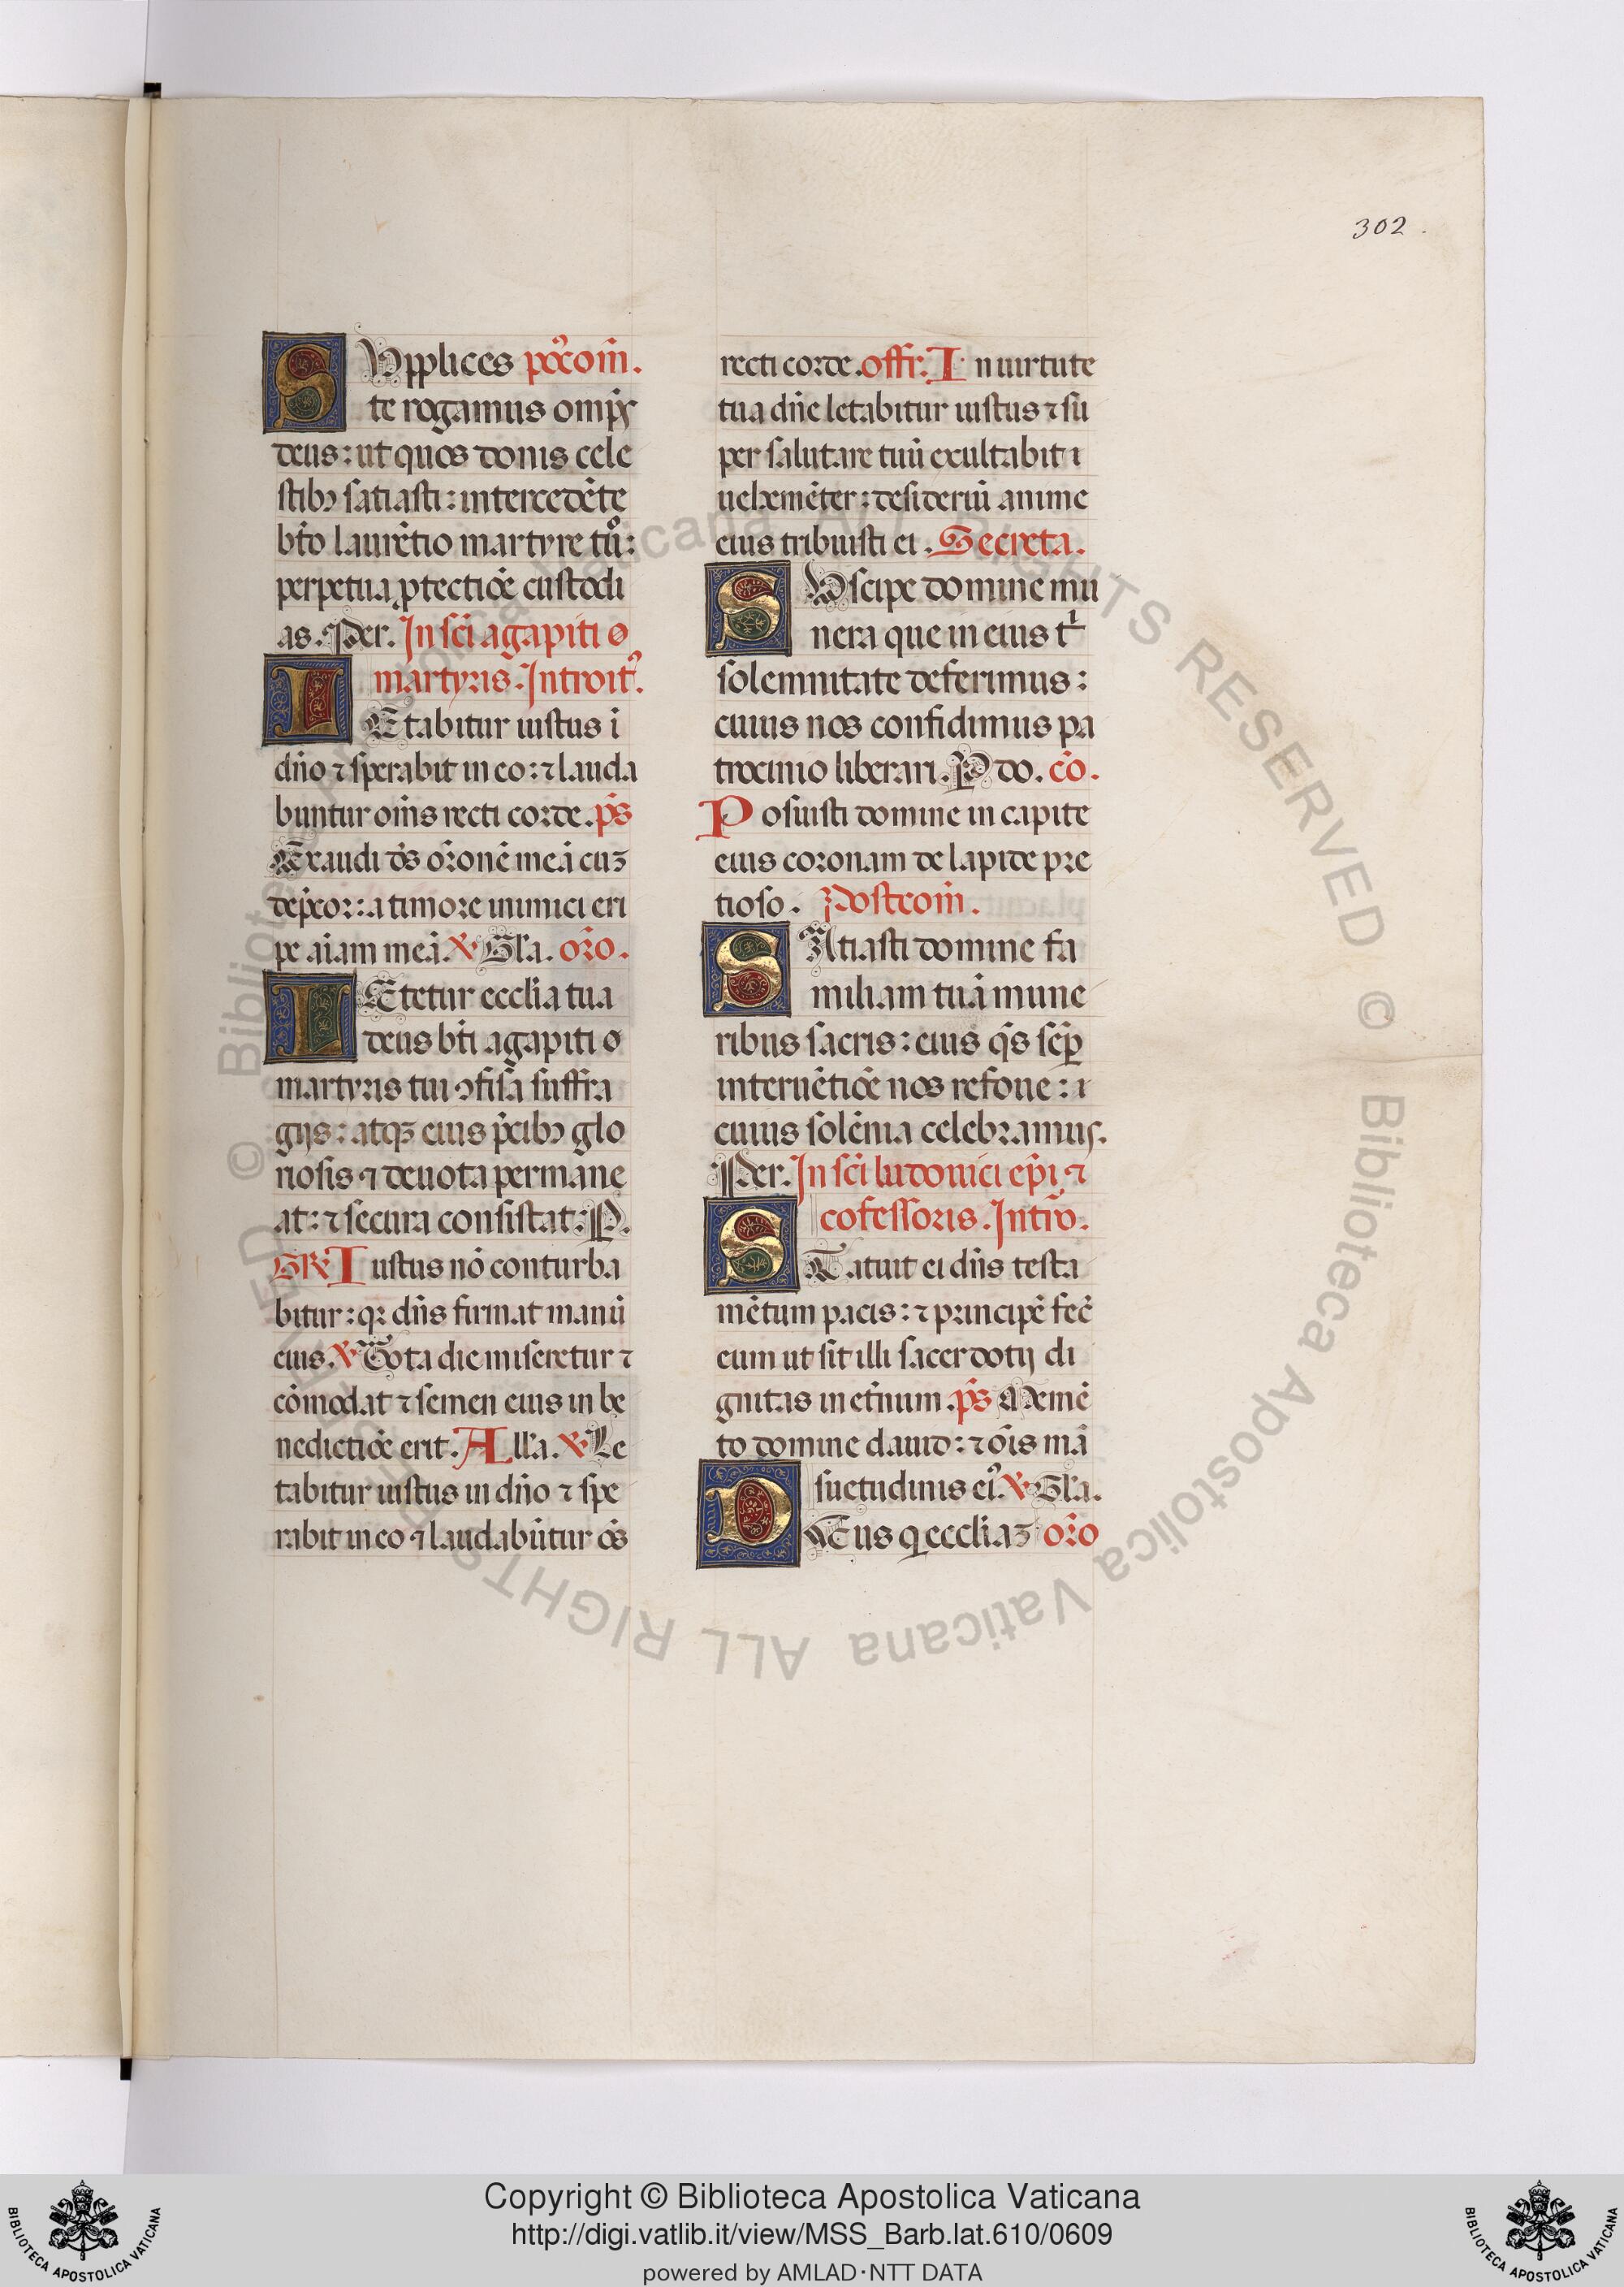 302.
SUpplices poscom̄.
te rogamus omp̄s
deus: ut quos donis cele
stibꝫ satiasti: intercedēte
bt̄o laurētio martyre tuo:
perpetua ꝓtectiōe custodi
as. Per. In sc̄i agapiti
martyris. Introitꝰ.
LEtabitur iustus ī
dn̄o ⁊ sperabit in eo: ⁊ lauda
buntur om̄s recti corde. ps̄
Exaudi ds̄ or̄onē meā cuꝫ
dep̄cor: a timore inimici eri
pe aīam meā. ℣ Gl̄a. or̄o.
LEtetur eccl̄ia tua
deus bt̄i agapiti
martyris tui ↄfisa suffra
gijs: atqꝫ eius p̄cibꝫ glo
riosis ⁊ deuota permane
at: ⁊ secura consistat: P.
GR̄ Iustus nō conturba
bitur: qꝛ dn̄s firmat manū
eius. ℣ Tota die miseretur ⁊
cōmodat ⁊ semen eius in be
nedictiōe erit. All̄a. ℣ Le
tabitur iustus in dn̄o ⁊ spe
rabit in eo ⁊ laudabūtur oēs
recti corde. offr̄. In uirtute
tua dn̄e letabitur iustus ⁊ su
per salutare tuū exultabit
uehemēter: desideriū anime
eius tribuisti ei. Secreta.
SUscipe domine mu
nera que in eius
solemnitate deferimus:
cuius nos confidimus pa
trocinio liberari. P do. cō.
Posuisti domine in capite
eius coronam de lapide pre
tioso. Postcom̄.
SAtiasti domine fa
miliam tuā mune
ribus sacris: eius qs̄ semꝑ
interuētiōe nos refoue:
cuius solēnia celebramus.
Per. In sc̄i ludouici ep̄i ⁊
cofessoris. Intro.
STatuit ei dn̄s testa
mētum pacis: ⁊ principē fecē
eum ut sit illi sacerdotij di
gnitas in et̄num. ps̄ Memē
to domine dauid: ⁊ oīs mā
suetudinis eiꝰ. ℣ Gl̄a.
DEus q̄ eccl̄iaꝫ or̄o
© Biblioteca Apostolica Vaticana ALL RIGHTS RESERVED
Copyright © Biblioteca Apostolica Vaticana
http://digi.vatlib.it/view/MSS_Barb.lat.610/0609
powered by AMLAD·NTT DATA
BIBLIOTECA APOSTOLICA VATICANA
BIBLIOTECA APOSTOLICA VATICANA